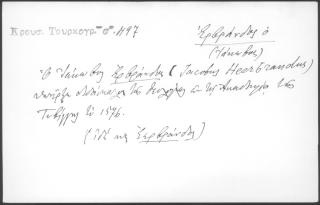 Κρουσ. Τουρκογρ. "σ". 497
Ἐρβράνδος ὁ
(Ἰάκωβος)
Ὁ Ἰάκωβος Ἐρβράνδος (Jacobus Heerbrandus)
ὑπῆρξε διδάσκαλος τῆς θεολογίας ἐν τῇ Ἀκαδημίᾳ τῆς
Τυβίγγης τῷ 1576.
(ἰδὲ καὶ Ἑερβράνδος)